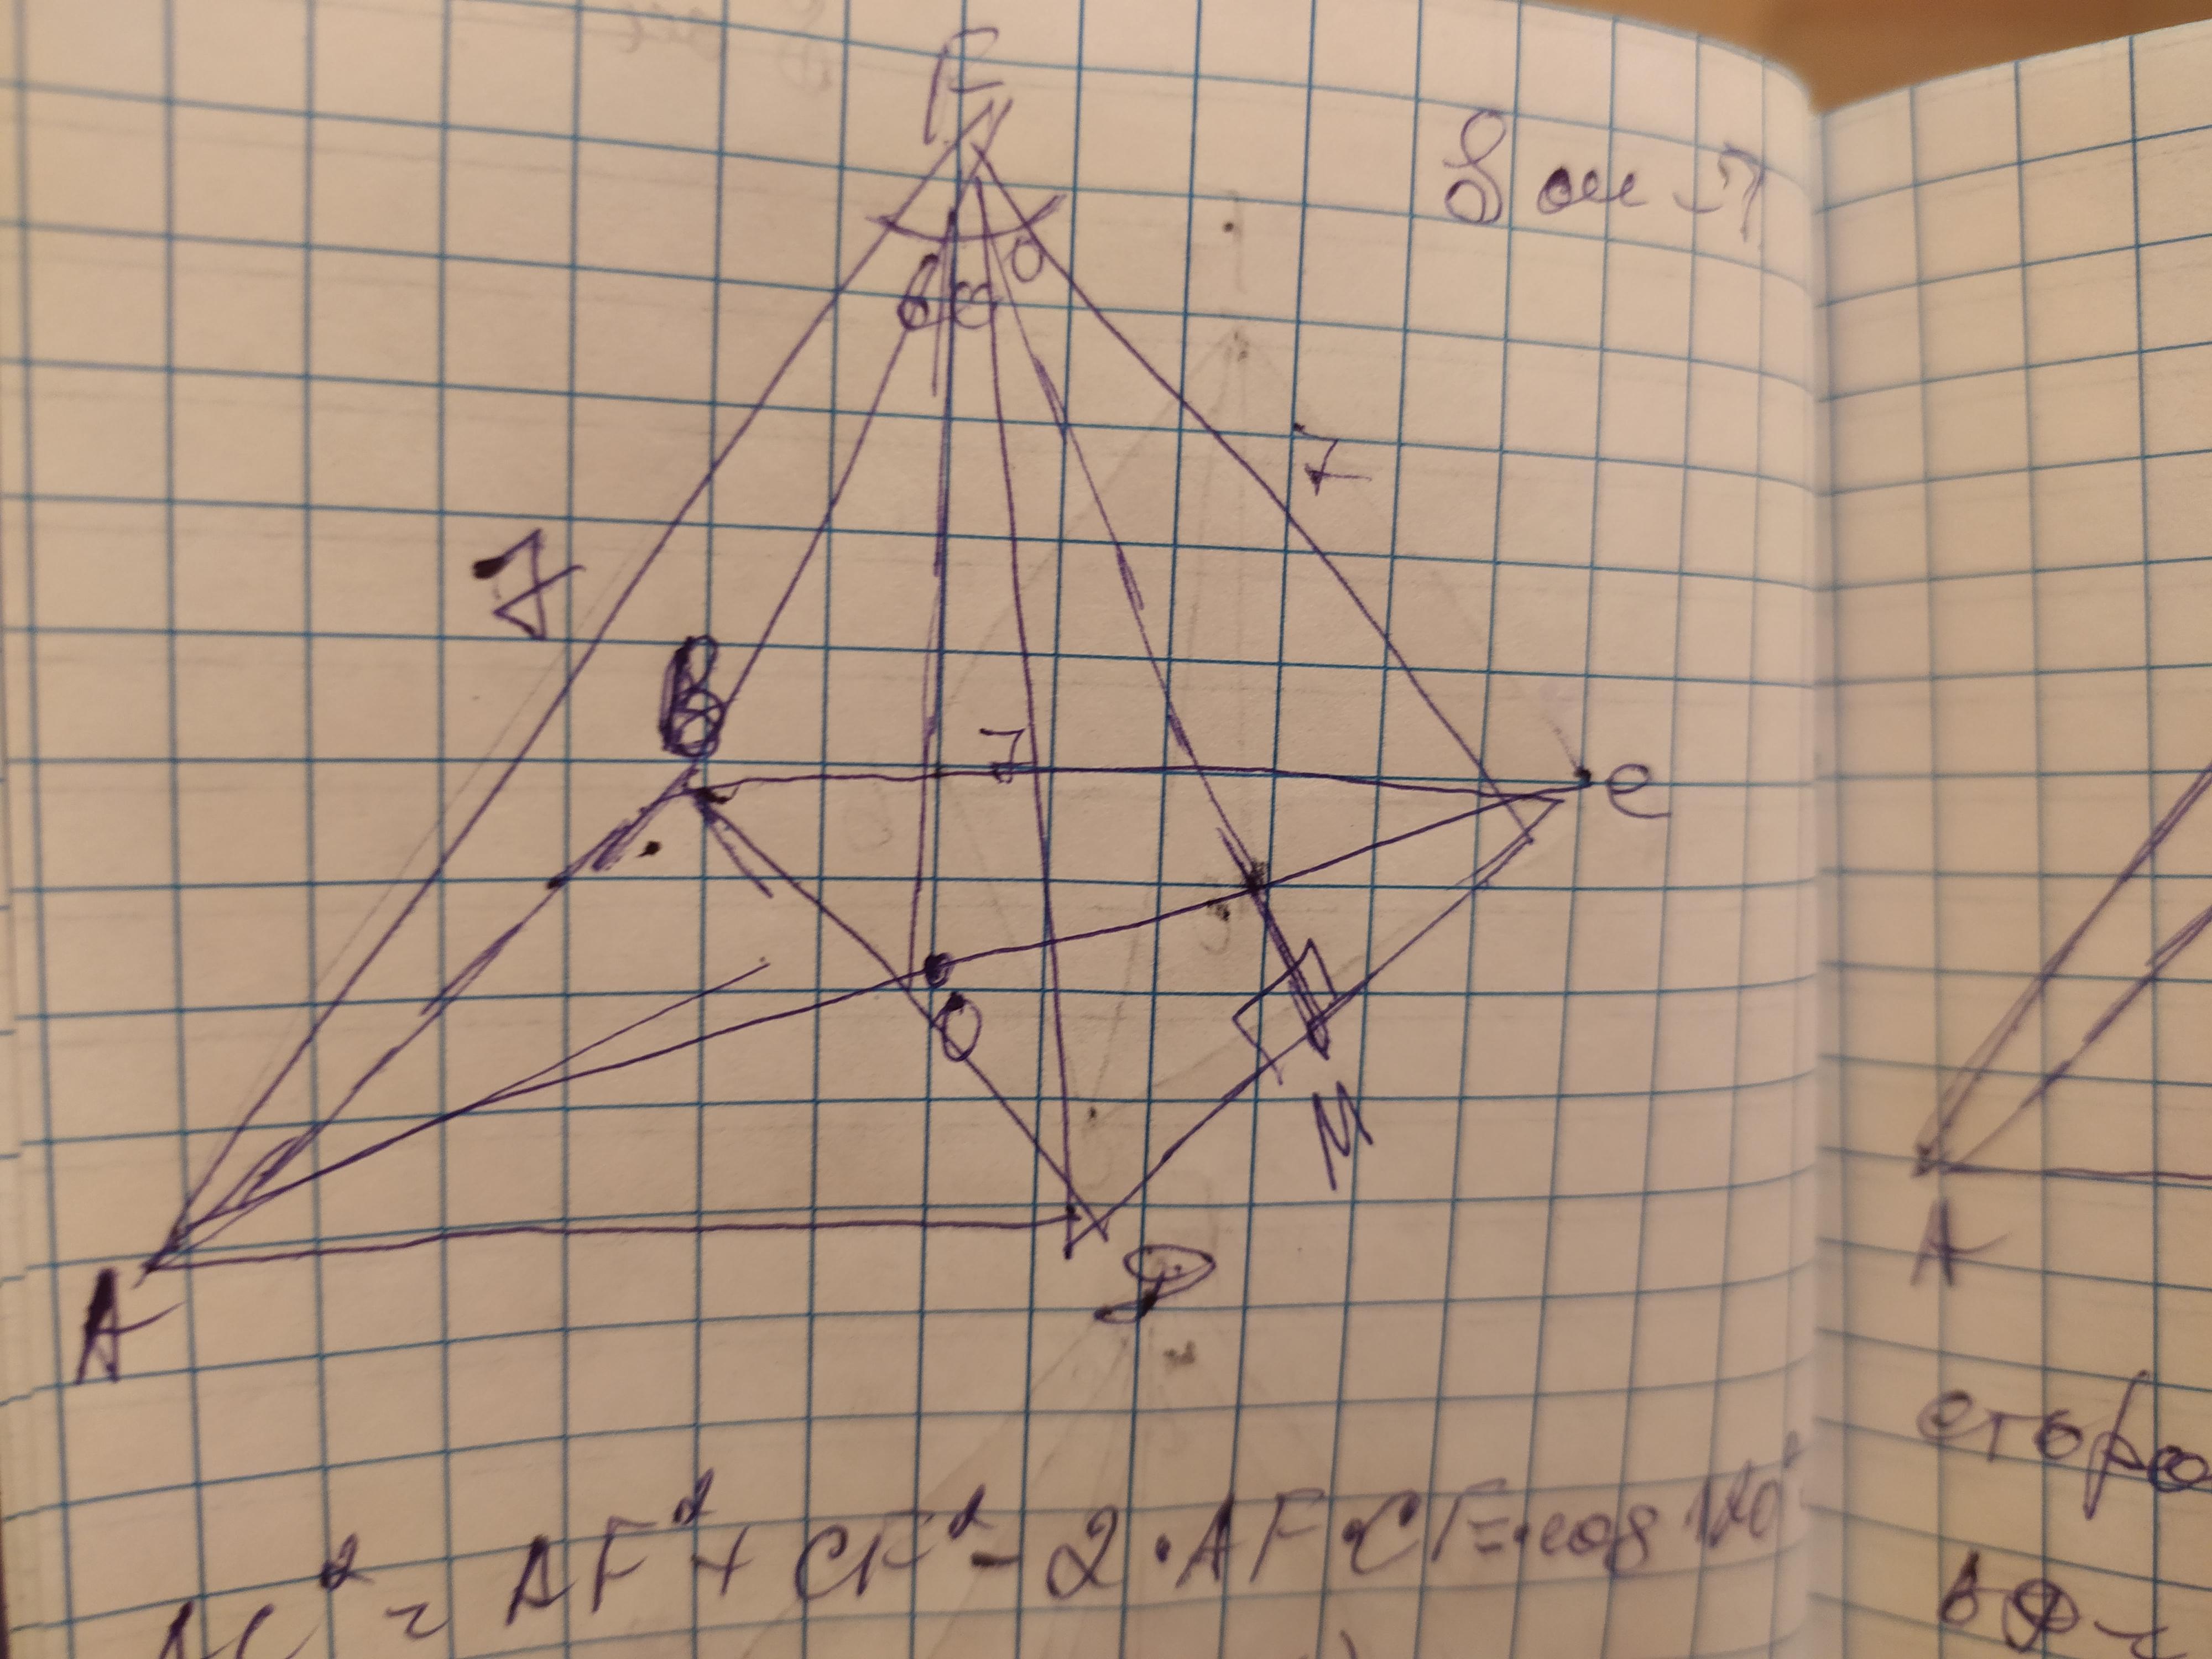 F
S осн - ?
60
7
7
B
7
C
O
M
A
D
AC² = AF² + CF² - 2 · AF · CF · cos 120°
A
сторо